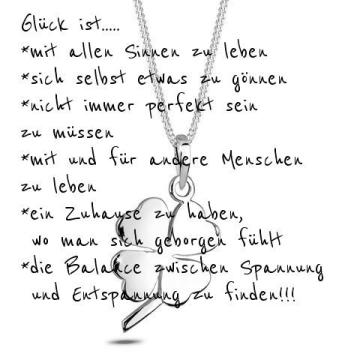 Glück ist.....
*mit allen Sinnen zu leben
*sich selbst etwas zu gönnen
*nicht immer perfekt sein
zu müssen
*mit und für andere Menschen
zu leben
*ein Zuhause zu haben,
wo man sich geborgen fühlt
*die Balance zwischen Spannung
und Entspannung zu finden!!!